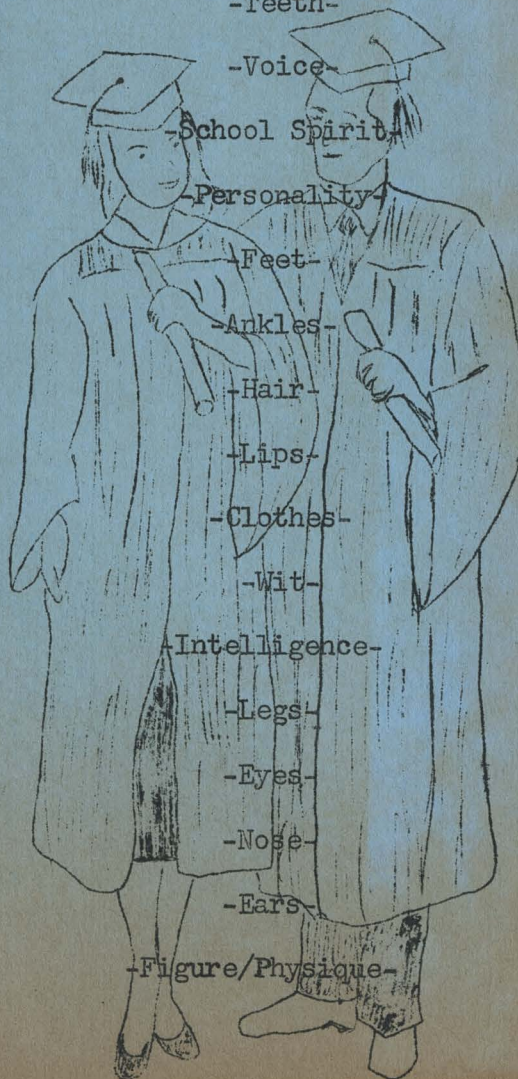 -Teeth-
-Voice-
-School Spirit-
-Personality-
-Feet-
-Ankles-
-Hair-
-Lips-
-Clothes-
-Wit-
-Intelligence-
-Legs-
-Eyes-
-Nose-
-Ears-
-Figure/Physique-